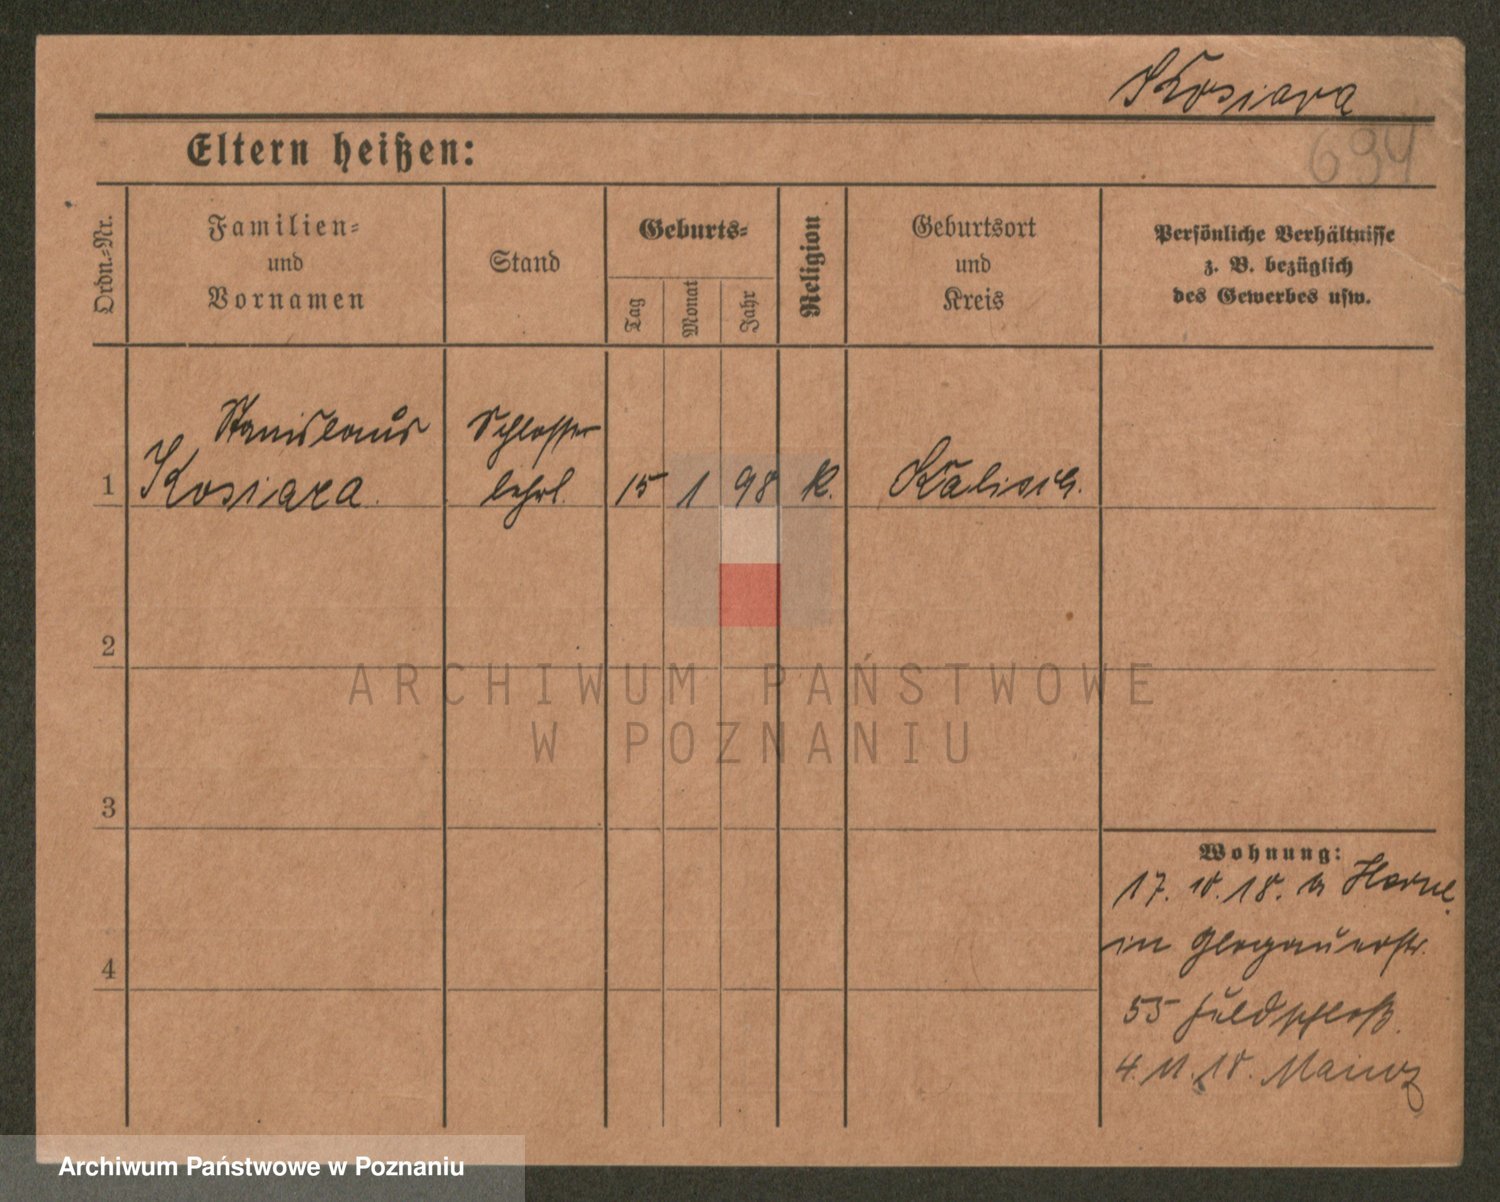 Kosiara
694
Eltern heißen:
Ordn.-Nr.
Familien-
und
Vornamen
Stand
Geburts-
Tag
Monat
Jahr
Religion
Geburtsort
und
Kreis
Persönliche Verhältnisse
z. B. bezüglich
des Gewerbes usw.
Stanislaus
Kosiara
Schlosser
lehrl.
1
15 1 98 k. Kalisch.
2
ARCHIWUM PAŃSTWOWE
W POZNANIU
3
Wohnung:
17. 10. 18. a
in Glogauerstr.
4
55
4. 11. 18. Mainz
Archiwum Państwowe w Poznaniu